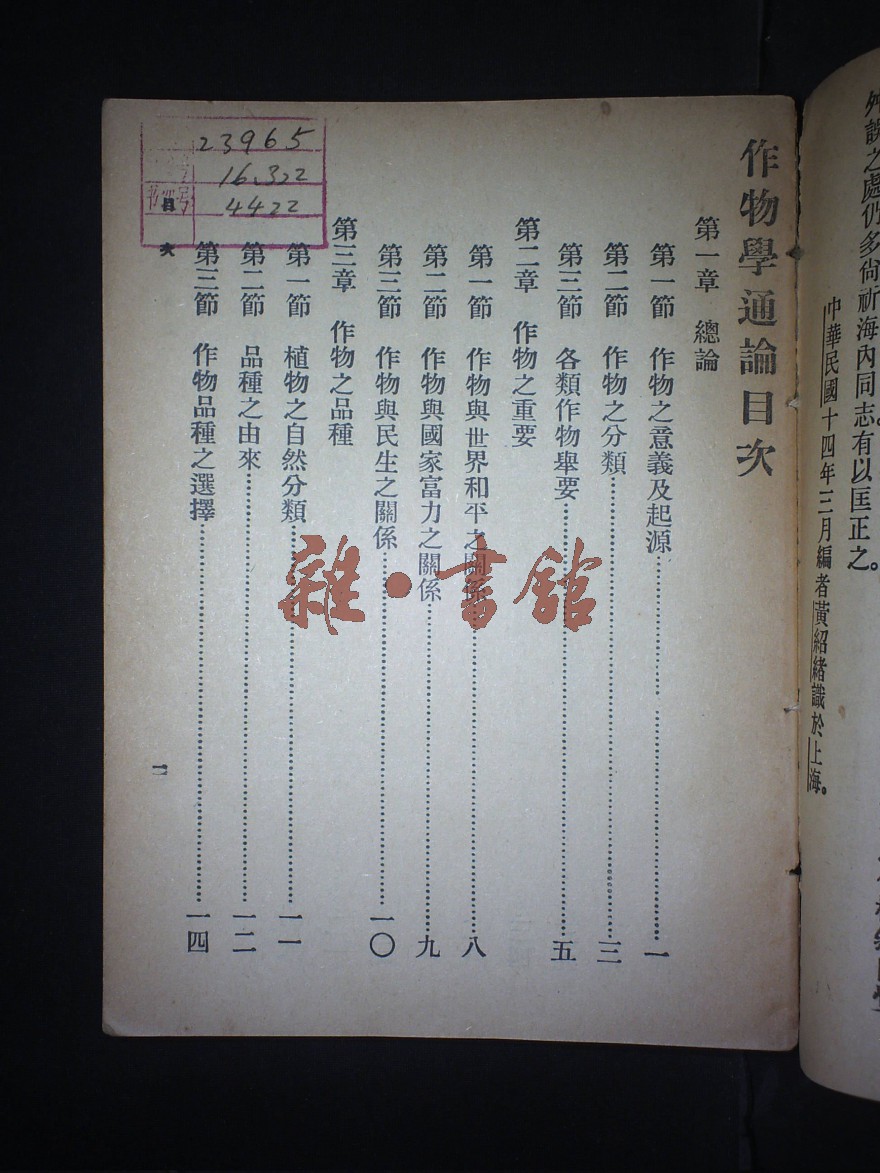 舛誤之處仍多尙祈海內同志有以匡正之。
中華民國十四年三月編者黃紹緒識於上海。
作物學通論目次
第一章 總論
第一節 作物之意義及起源……一
第二節 作物之分類……三
第三節 各類作物舉要……五
第二章 作物之重要
第一節 作物與世界和平之關係……八
第二節 作物與國家富力之關係……九
第三節 作物與民生之關係……一〇
第三章 作物之品種
第一節 植物之自然分類……一一
第二節 品種之由來……一二
第三節 作物品種之選擇……一四
目次
一
23965
16.322
4422
雜·書館